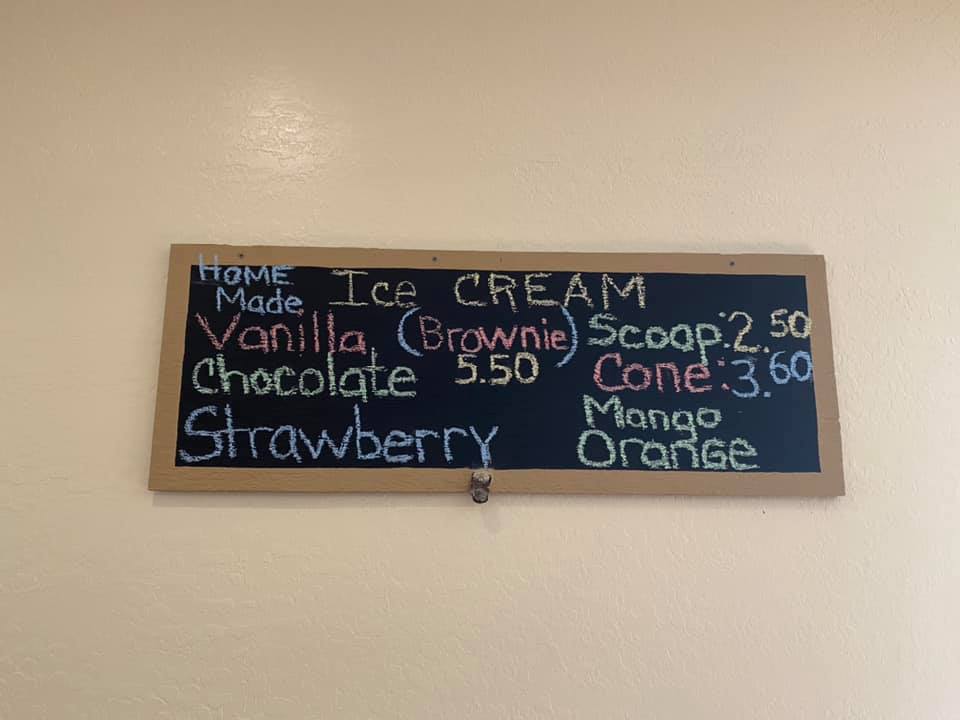 HOME
Made Ice CREAM
Vanilla (Brownie) Scoop: 2.50
5.50
Chocolate Cone: 3.60
Mango
Strawberry Orange